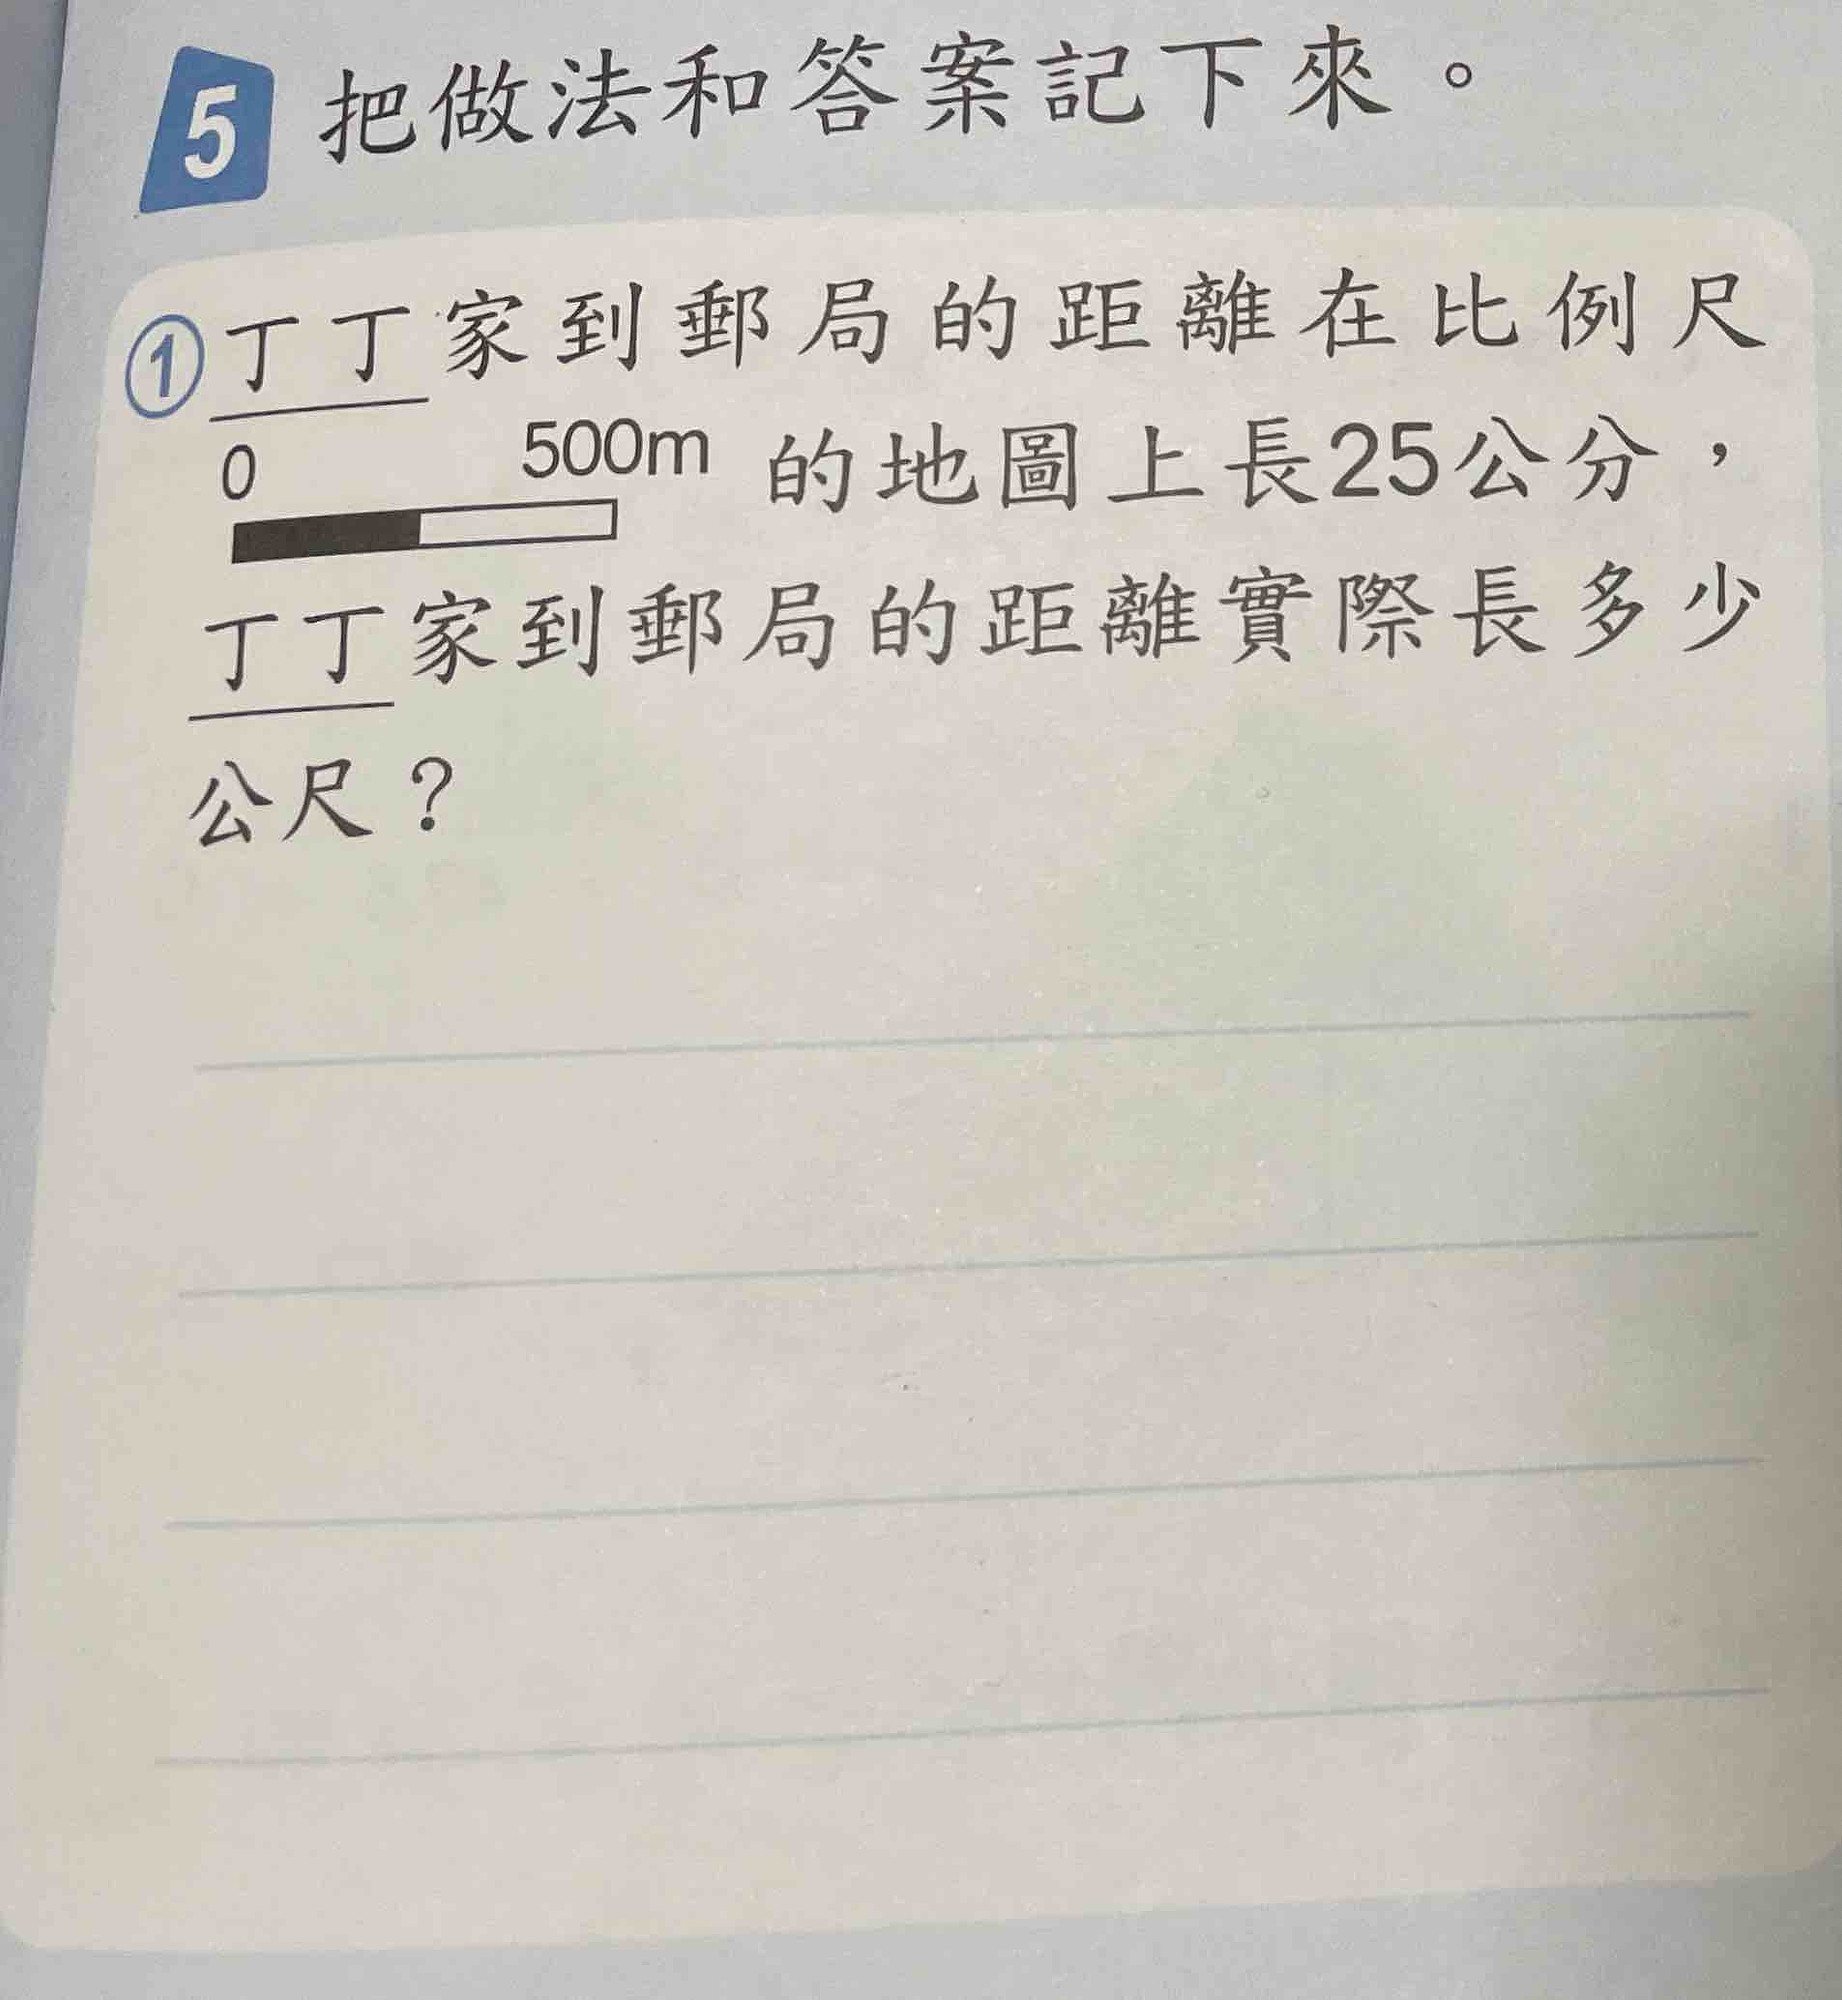 5 把做法和答案記下來。
①丁丁家到郵局的距離在比例尺
0 500m 的地圖上長25公分，
丁丁家到郵局的距離實際長多少
公尺？